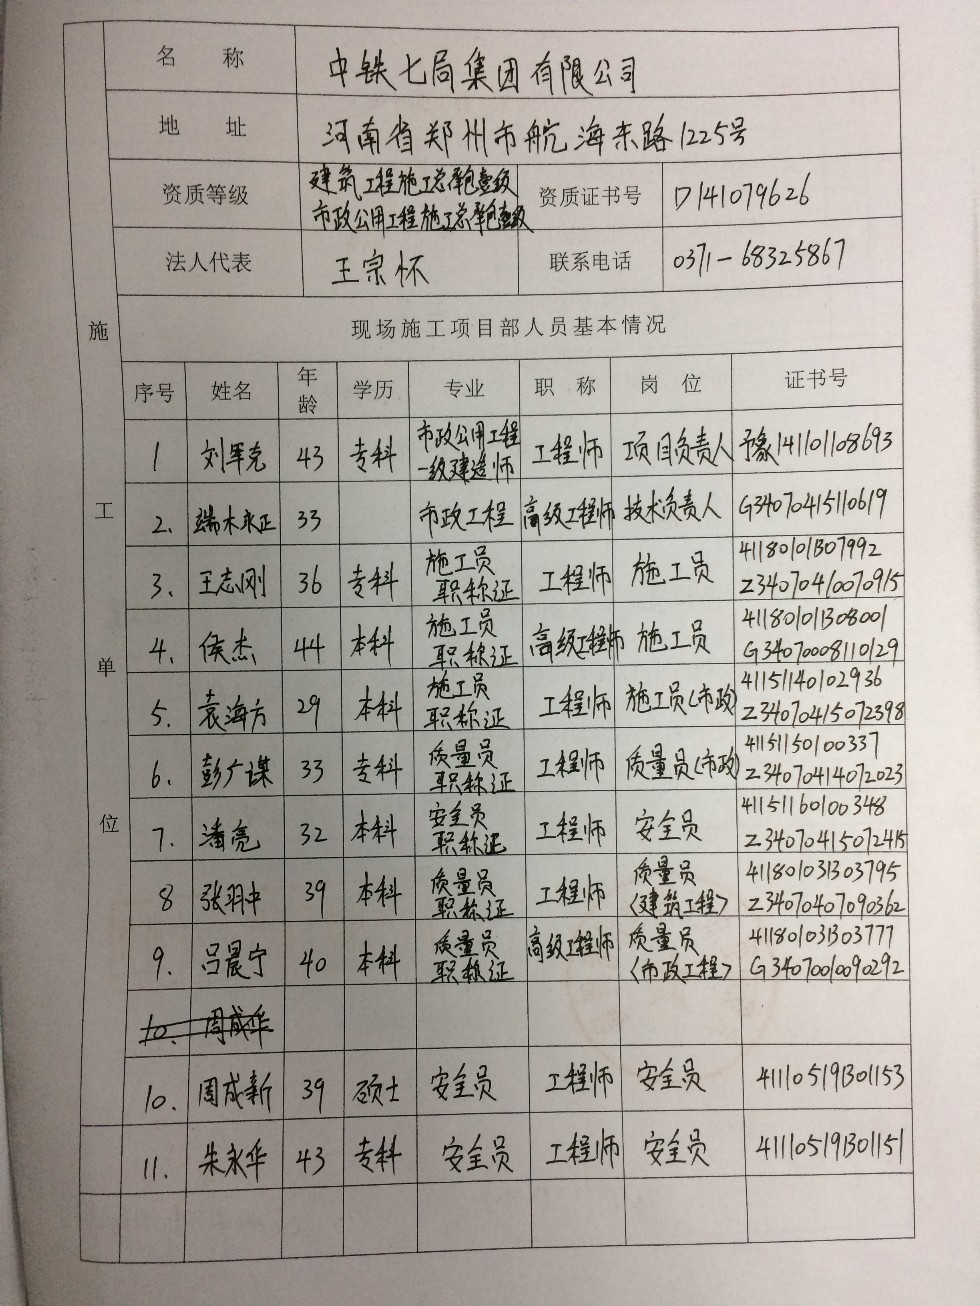 名 称 中铁七局集团有限公司
地 址 河南省郑州市航海东路1225号
资质等级 建筑工程施工总承包壹级 资质证书号 D141079626
市政公用工程施工总承包壹级
法人代表 王宗怀 联系电话 0371-68325867
施工单位
现场施工项目部人员基本情况
序号 姓名 年龄 学历 专业 职称 岗位 证书号
1 刘军克 43 专科 市政公用工程 工程师 项目负责人 予豫141101108693
一级建造师
2. 端木永正 33 市政工程 高级工程师 技术负责人 G34070415110619
3. 王志刚 36 专科 施工员 工程师 施工员 41180101307992
职称证 Z34070410070915
4. 侯杰 44 本科 施工员 高级工程师 施工员 41180101308001
职称证 G34070008110129
5. 袁海方 29 本科 施工员 工程师 施工员(市政) 41151140102936
职称证 Z34070415072398
6. 彭广谋 33 专科 质量员 工程师 质量员(市政) 41151150100337
职称证 Z34070414072023
7. 潘亮 32 本科 安全员 工程师 安全员 41151160100348
职称证 Z34070415072415
8 张羽中 39 本科 质量员 工程师 质量员 411801031303795
职称证 <建筑工程> Z34070407090362
9. 吕晨宁 40 本科 质量员 高级工程师 质量员 411801031303777
职称证 <市政工程> G34070010090292
10. 周成华
10. 周成新 39 硕士 安全员 工程师 安全员 41110519B01153
11. 朱永华 43 专科 安全员 工程师 安全员 41110519B01151